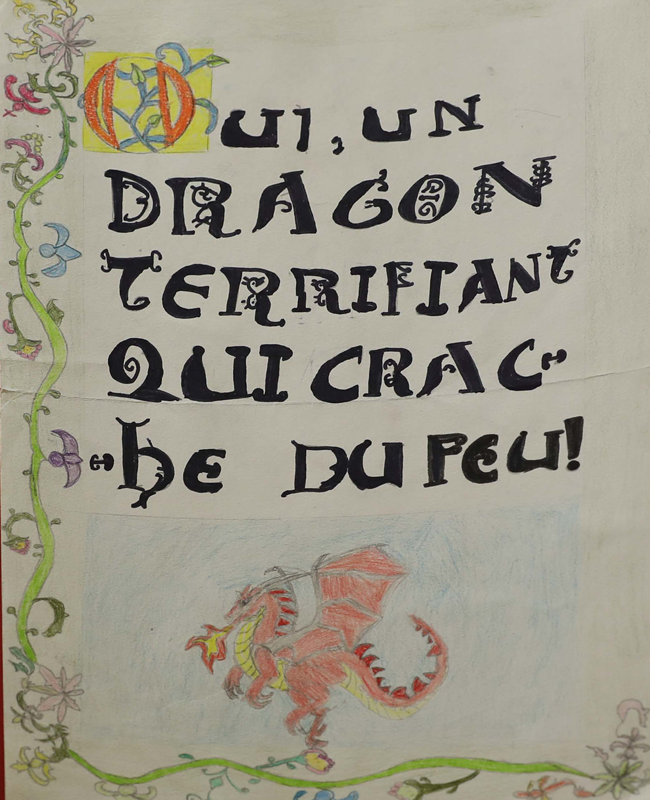 OUI, UN
DRAGON
TERRIFIANT
QUI CRAC-
-HE DU FEU!